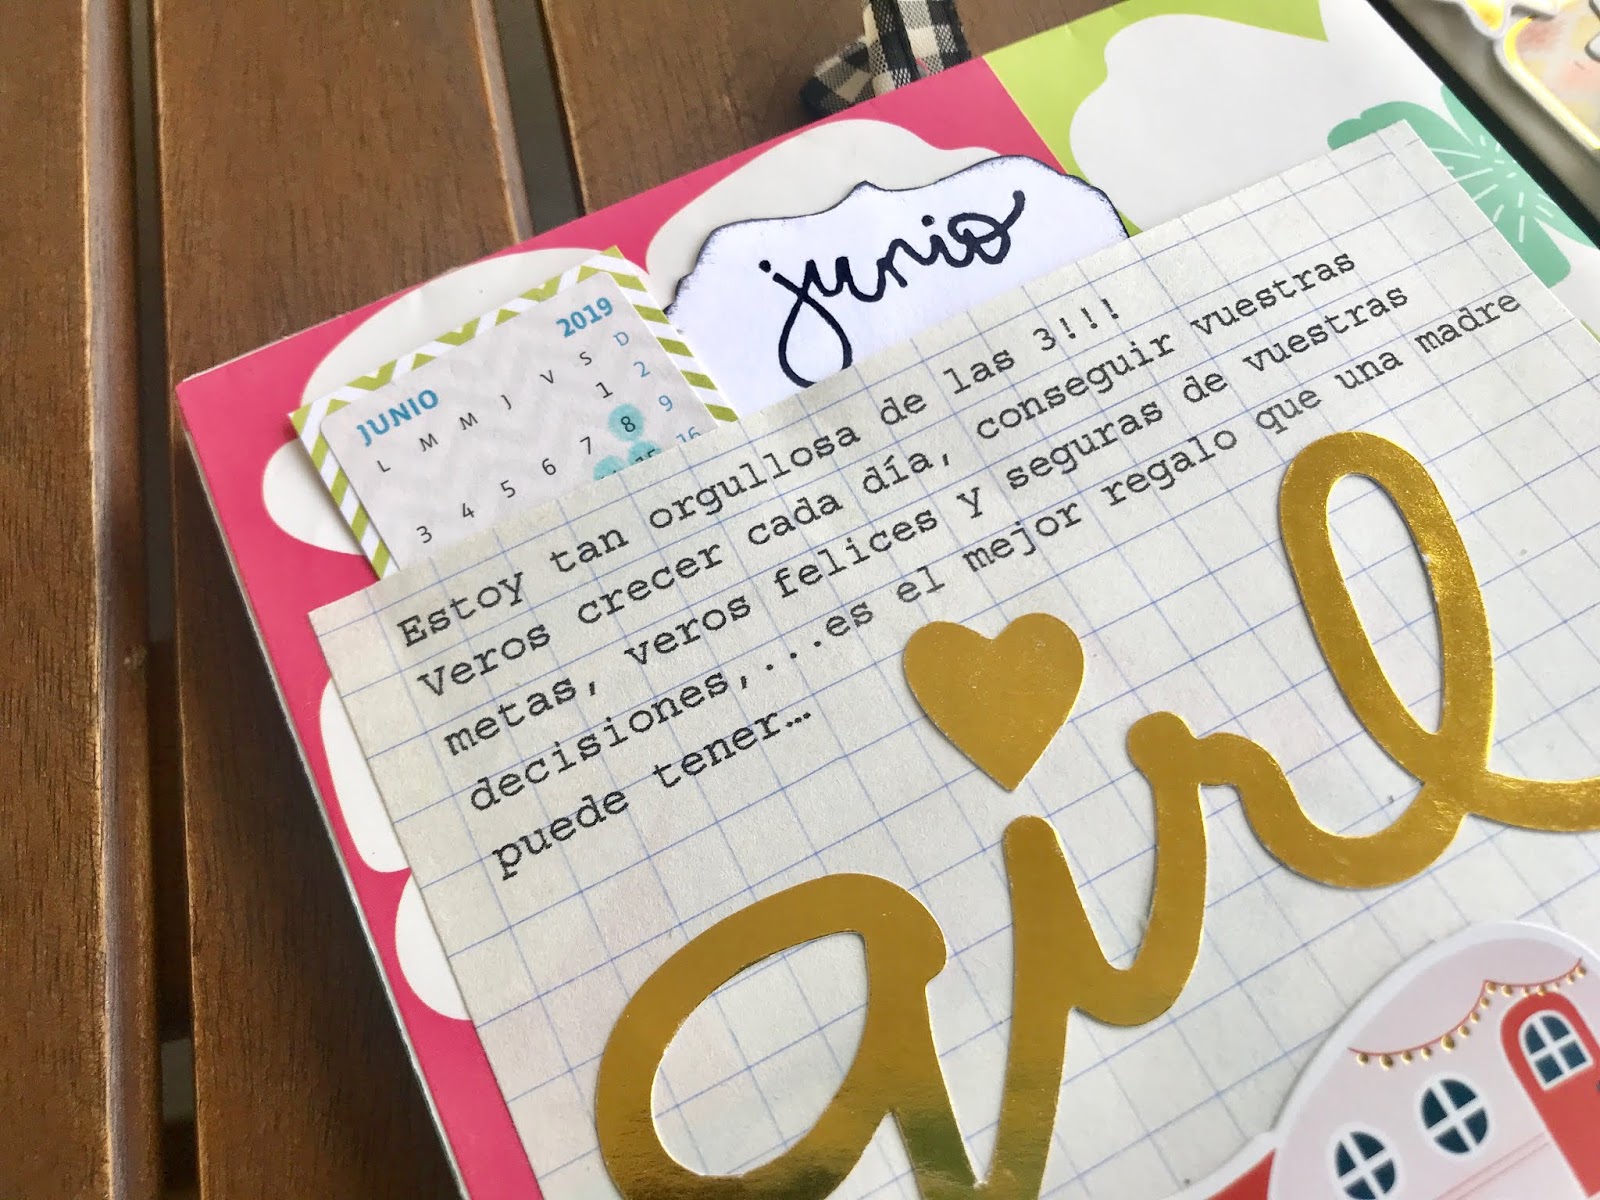 junio
2019
JUNIO
L M M J V S D
1 2
3 4 5 6 7 8 9
15 16
Estoy tan orgullosa de las 3!!!
Veros crecer cada día, conseguir vuestras
metas, veros felices y seguras de vuestras
decisiones,...es el mejor regalo que una madre
puede tener…
girl